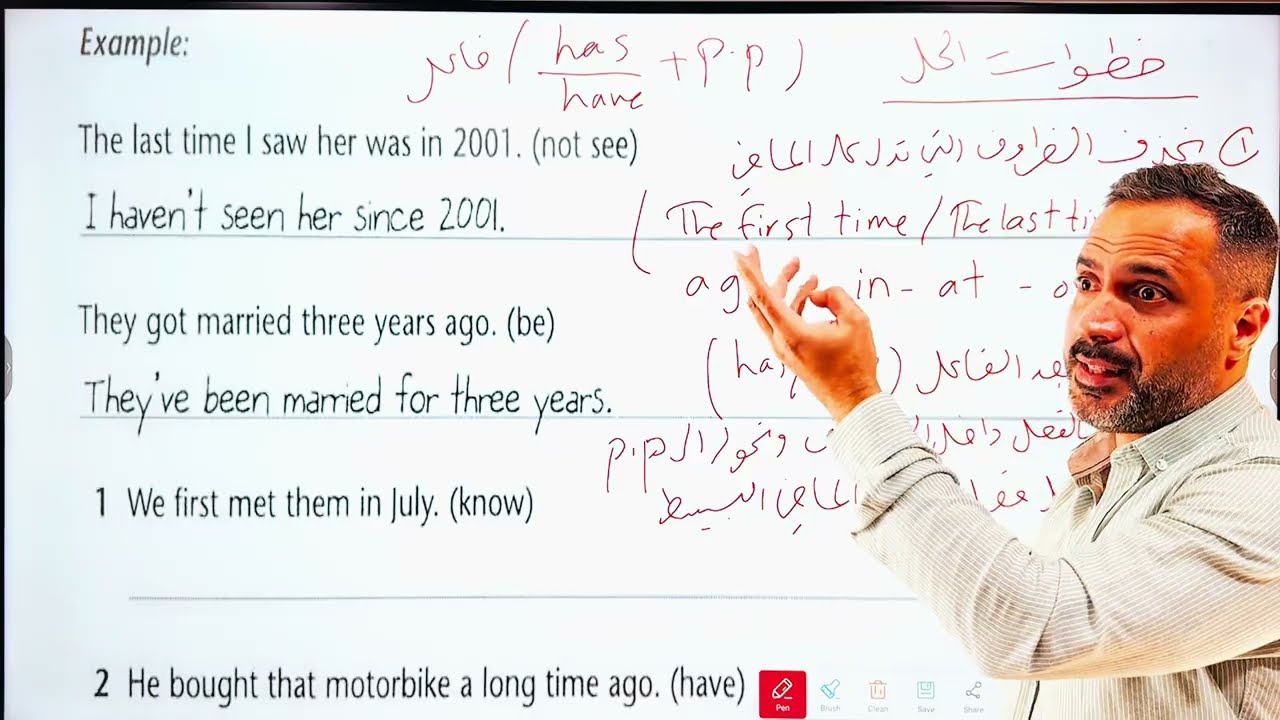 Example:
فاعل ( has / have + p.p )
خطوات الحل
The last time I saw her was in 2001. (not see)
① نحذف الظروف التي تدل على الماضي
I haven't seen her since 2001.
( The first time / The last
in - at -
They got married three years ago. (be)
الفاعل
They've been married for three years.
p.p
1 We first met them in July. (know)
الماضي البسيط
2 He bought that motorbike a long time ago. (have)
Pen
Brush
Clean
Save
Share